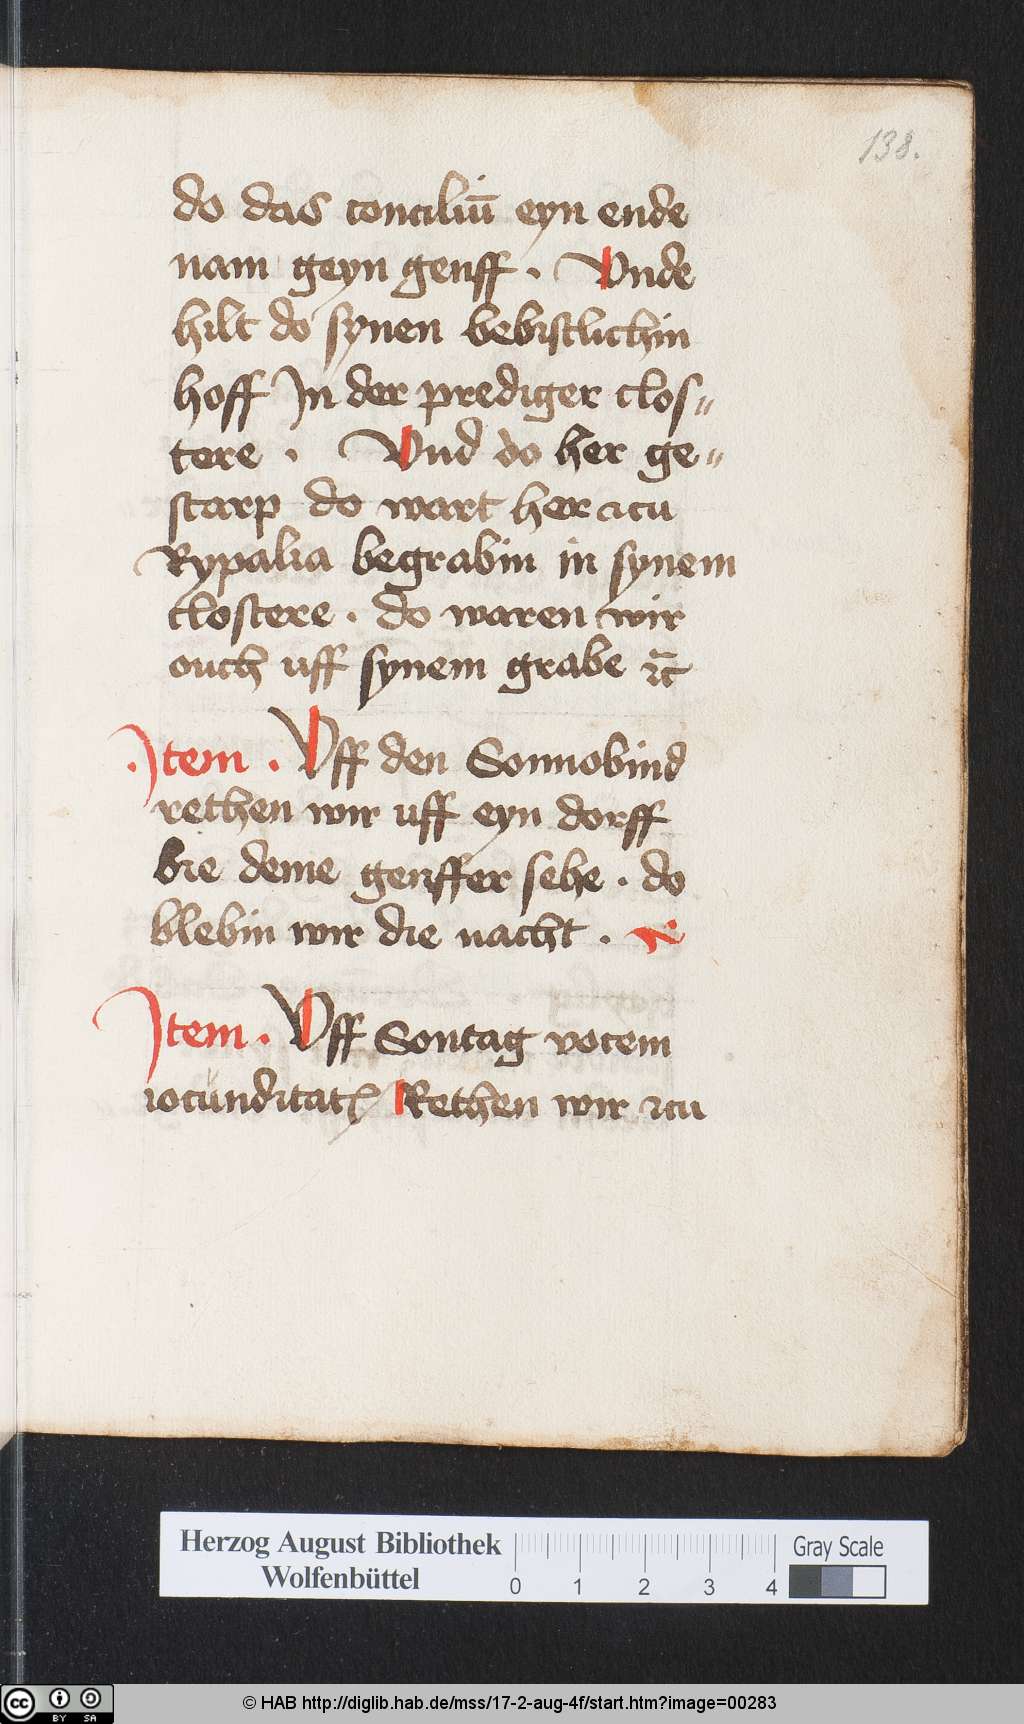 138.
do das conciliū eyn ende
nam geyn genff . Vnde
hilt do synen bebistlichin
hoff Jn der prediger clos〃
tere . Vnd do her ge〃
starp do wart her czu
Rypalia begrabin in synem
clostere . do waren wir
ouch uff synem grabe ꝛc̄
.Jtem . Vff den Sonnobind
rethen wir uff eyn dorff
bie deme genffer sehe . do
blebin wir die nacht .
Jtem . Vff Sontag vocem
iocunditatꝭ Rethen wir czu
Herzog August Bibliothek
Wolfenbüttel
0 1 2 3 4
Gray Scale
cc BY SA
© HAB http://diglib.hab.de/mss/17-2-aug-4f/start.htm?image=00283